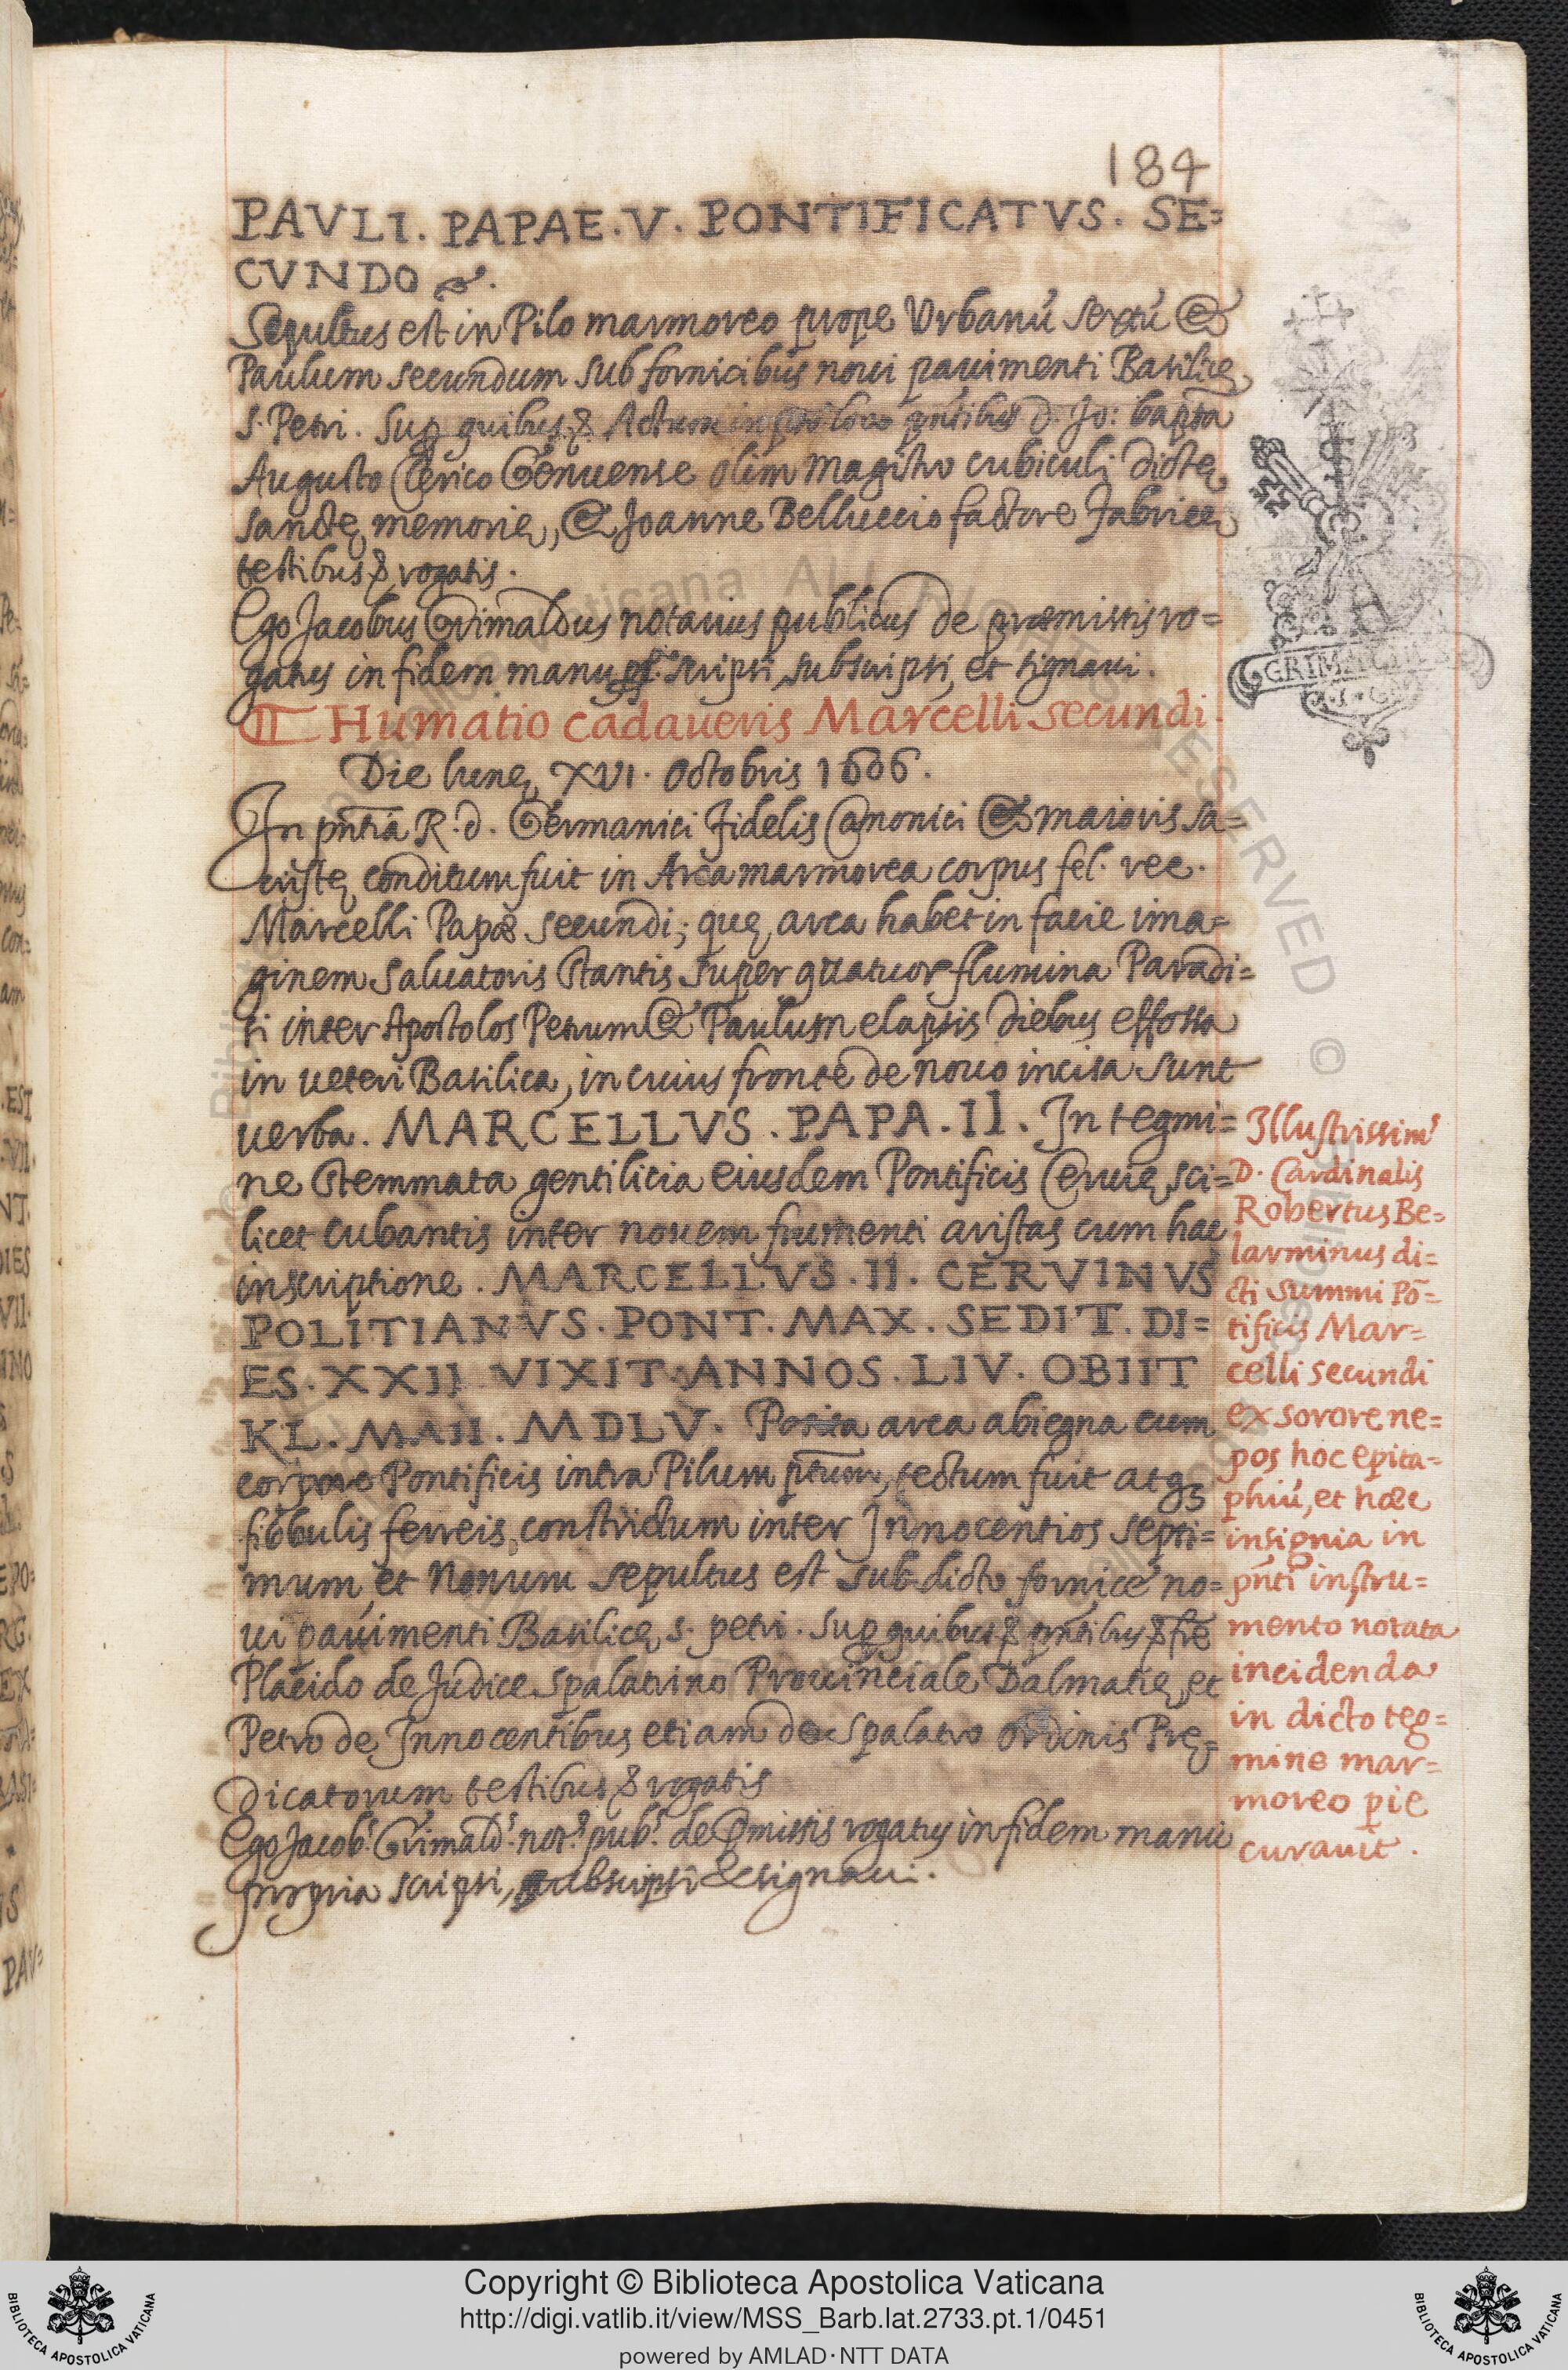 184
PAVLI. PAPAE. V. PONTIFICATVS. SE=
CVNDO &.
Sepultus est in Pilo marmoreo prope Vrbanú sextú &
Paulum secundum sub fornicibus noui pauimenti Basilicę
s. Petri. Sup quibus & Actum loco pntibus D. Jo: bapta
Augusto Clerico Genuense olim Magistro cubiculi dictę
sanctę memorię, & Joanne Belluccio factore Fabricę
testibus & rogatis.
Ego Jacobus Grimaldus notarius publicus de præmissis ro=
gatus in fidem manu scripsi subscripsi, et signaui.
GRIMALDVS
Humatio cadaueris Marcelli secundi.
Die lunę XVI. Octobris 1606.
In pñtia R. d. Germanici Fidelis Canonici & maioris sa=
cristę conditum fuit in Arca marmorea corpus fel. rec.
Marcelli Papæ secundi; quę arca habet in facie ima=
ginem Saluatoris stantis super quatuor flumina Paradi=
si inter Apostolos Petrum & Paulum elapsis diebus effossa
in ueteri Basilica, in cuius fronte de nouo incisa sunt
uerba. MARCELLVS. PAPA. II. In tegmi=
ne stemmata gentilicia eiusdem Pontificis Ceruię sci=
licet cubantis inter nouem frumenti aristas cum hac
inscriptione. MARCELLVS. II. CERVINVS
POLITIANVS. PONT. MAX. SEDIT. DI=
ES. XXII VIXIT. ANNOS. LIV. OBIIT
KL. MAII. MDLV. Posita arca abiegna cum
corpore Pontificis intra Pilum ptum, tectum fuit atq3
fibbulis ferreis constrictum inter Innocentios septi=
mum, et Nonum sepultus est sub dicto fornice no=
ui pauimenti Basilicę s. petri. Sup quibus & pntibus & fre
Placido de Judice spalatrino Prouinciale Dalmatię, et
Petro de Innocentibus etiam de Spalatro ordinis Prę=
dicatorum testibus & rogatis
Ego Jacob. Grimald. not. pub. de pmissis rogatus in fidem manu
propria scripsi, subscripsi & signaui.
Illustrissim'
D. Cardinalis
Robertus Be=
larminus di=
cti summi Põ=
tificis Mar=
celli secundi
ex sorore ne=
pos hoc epita=
phiú, et hæc
insignia in
pñti instru=
mento notata
incidenda
in dicto teg=
mine mar=
moreo pie
curauit.
Copyright © Biblioteca Apostolica Vaticana
http://digi.vatlib.it/view/MSS_Barb.lat.2733.pt.1/0451
powered by AMLAD·NTT DATA
BIBLIOTECA APOSTOLICA VATICANA
BIBLIOTECA APOSTOLICA VATICANA